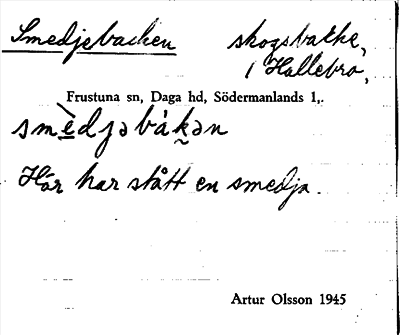 Smedjebacken skogsbacke,
i Hallebro,
Frustuna sn, Daga hd, Södermanlands l,.
smèdjəbákən
Här har stått en smedja.
Artur Olsson 1945